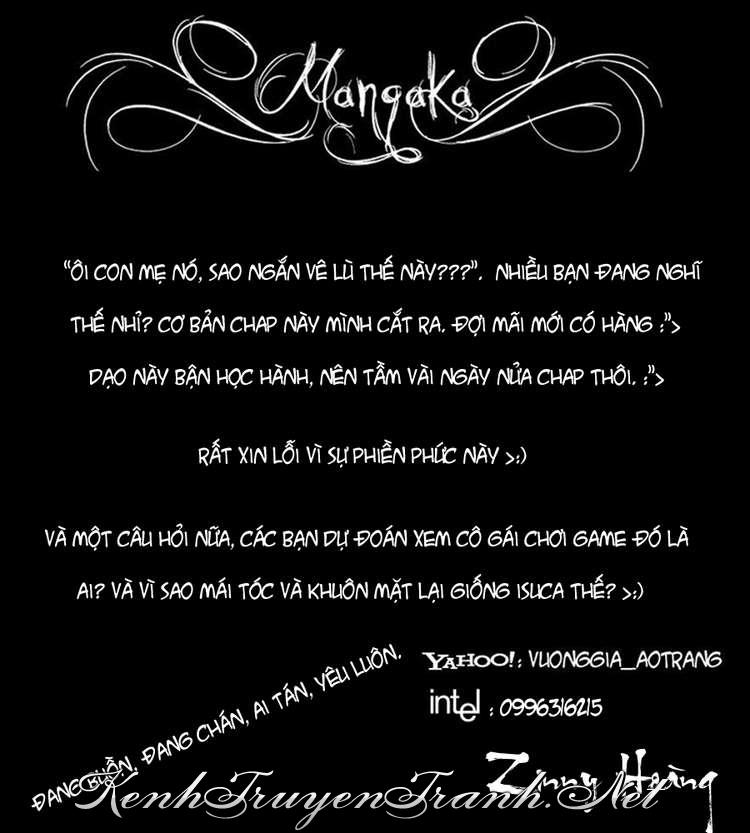 Mangaka
"ÔI CON MẸ NÓ, SAO NGẮN VÊ LÙ THẾ NÀY???". NHIỀU BẠN ĐANG NGHĨ
THẾ NHỈ? CƠ BẢN CHAP NÀY MÌNH CẮT RA. ĐỢI MÃI MỚI CÓ HÀNG :">
DẠO NÀY BẬN HỌC HÀNH, NÊN TẦM VÀI NGÀY NỬA CHAP THÔI. :">
RẤT XIN LỖI VÌ SỰ PHIỀN PHỨC NÀY >:)
VÀ MỘT CÂU HỎI NỮA, CÁC BẠN DỰ ĐOÁN XEM CÔ GÁI CHƠI GAME ĐÓ LÀ
AI? VÀ VÌ SAO MÁI TÓC VÀ KHUÔN MẶT LẠI GIỐNG ISUCA THẾ? >:)
ĐANG BUỒN. ĐANG CHÁN, AI TÁN, YÊU LUÔN.
YAHOO!: VUONGGIA_AOTRANG
intel : 0996316215
Zinny Hoàng
KenhTruyenTranh.Net